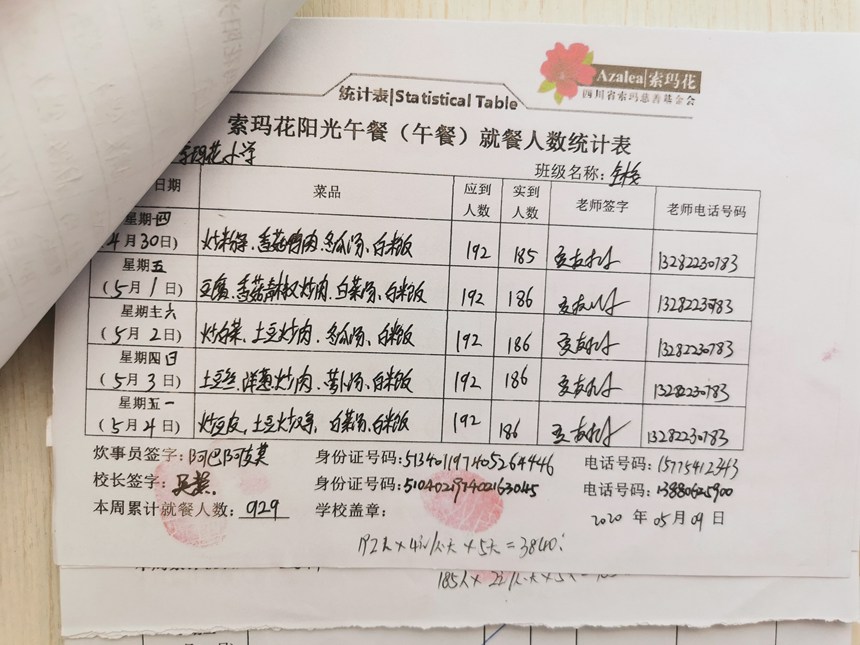 Azalea|索玛花
四川省索玛慈善基金会
统计表|Statistical Table
索玛花阳光午餐（午餐）就餐人数统计表
索玛花小学 班级名称：全校
日期 菜品 应到人数 实到人数 老师签字 老师电话号码
星期四 (4月30日) 炒粉条、香菇鸭肉、冬瓜汤、白米饭 192 185 13282230783
星期五 (5月1日) 豆腐、香菇青椒炒肉、白菜汤、白米饭 192 186 13282230783
星期六 (5月2日) 炒白菜、土豆炒肉、冬瓜汤、白米饭 192 186 13282230783
星期日 (5月3日) 土豆丝、洋葱炒肉、萝卜汤、白米饭 192 186 13282230783
星期一 (5月4日) 炒豆皮、土豆炒鸡、白菜汤、白米饭 192 186 13282230783
炊事员签字： 身份证号码：513401197405264446 电话号码：15775412343
校长签字： 身份证号码： 电话号码：
本周累计就餐人数：929 学校盖章： 2020年05月09日
192人×4元/人天×5天=3840